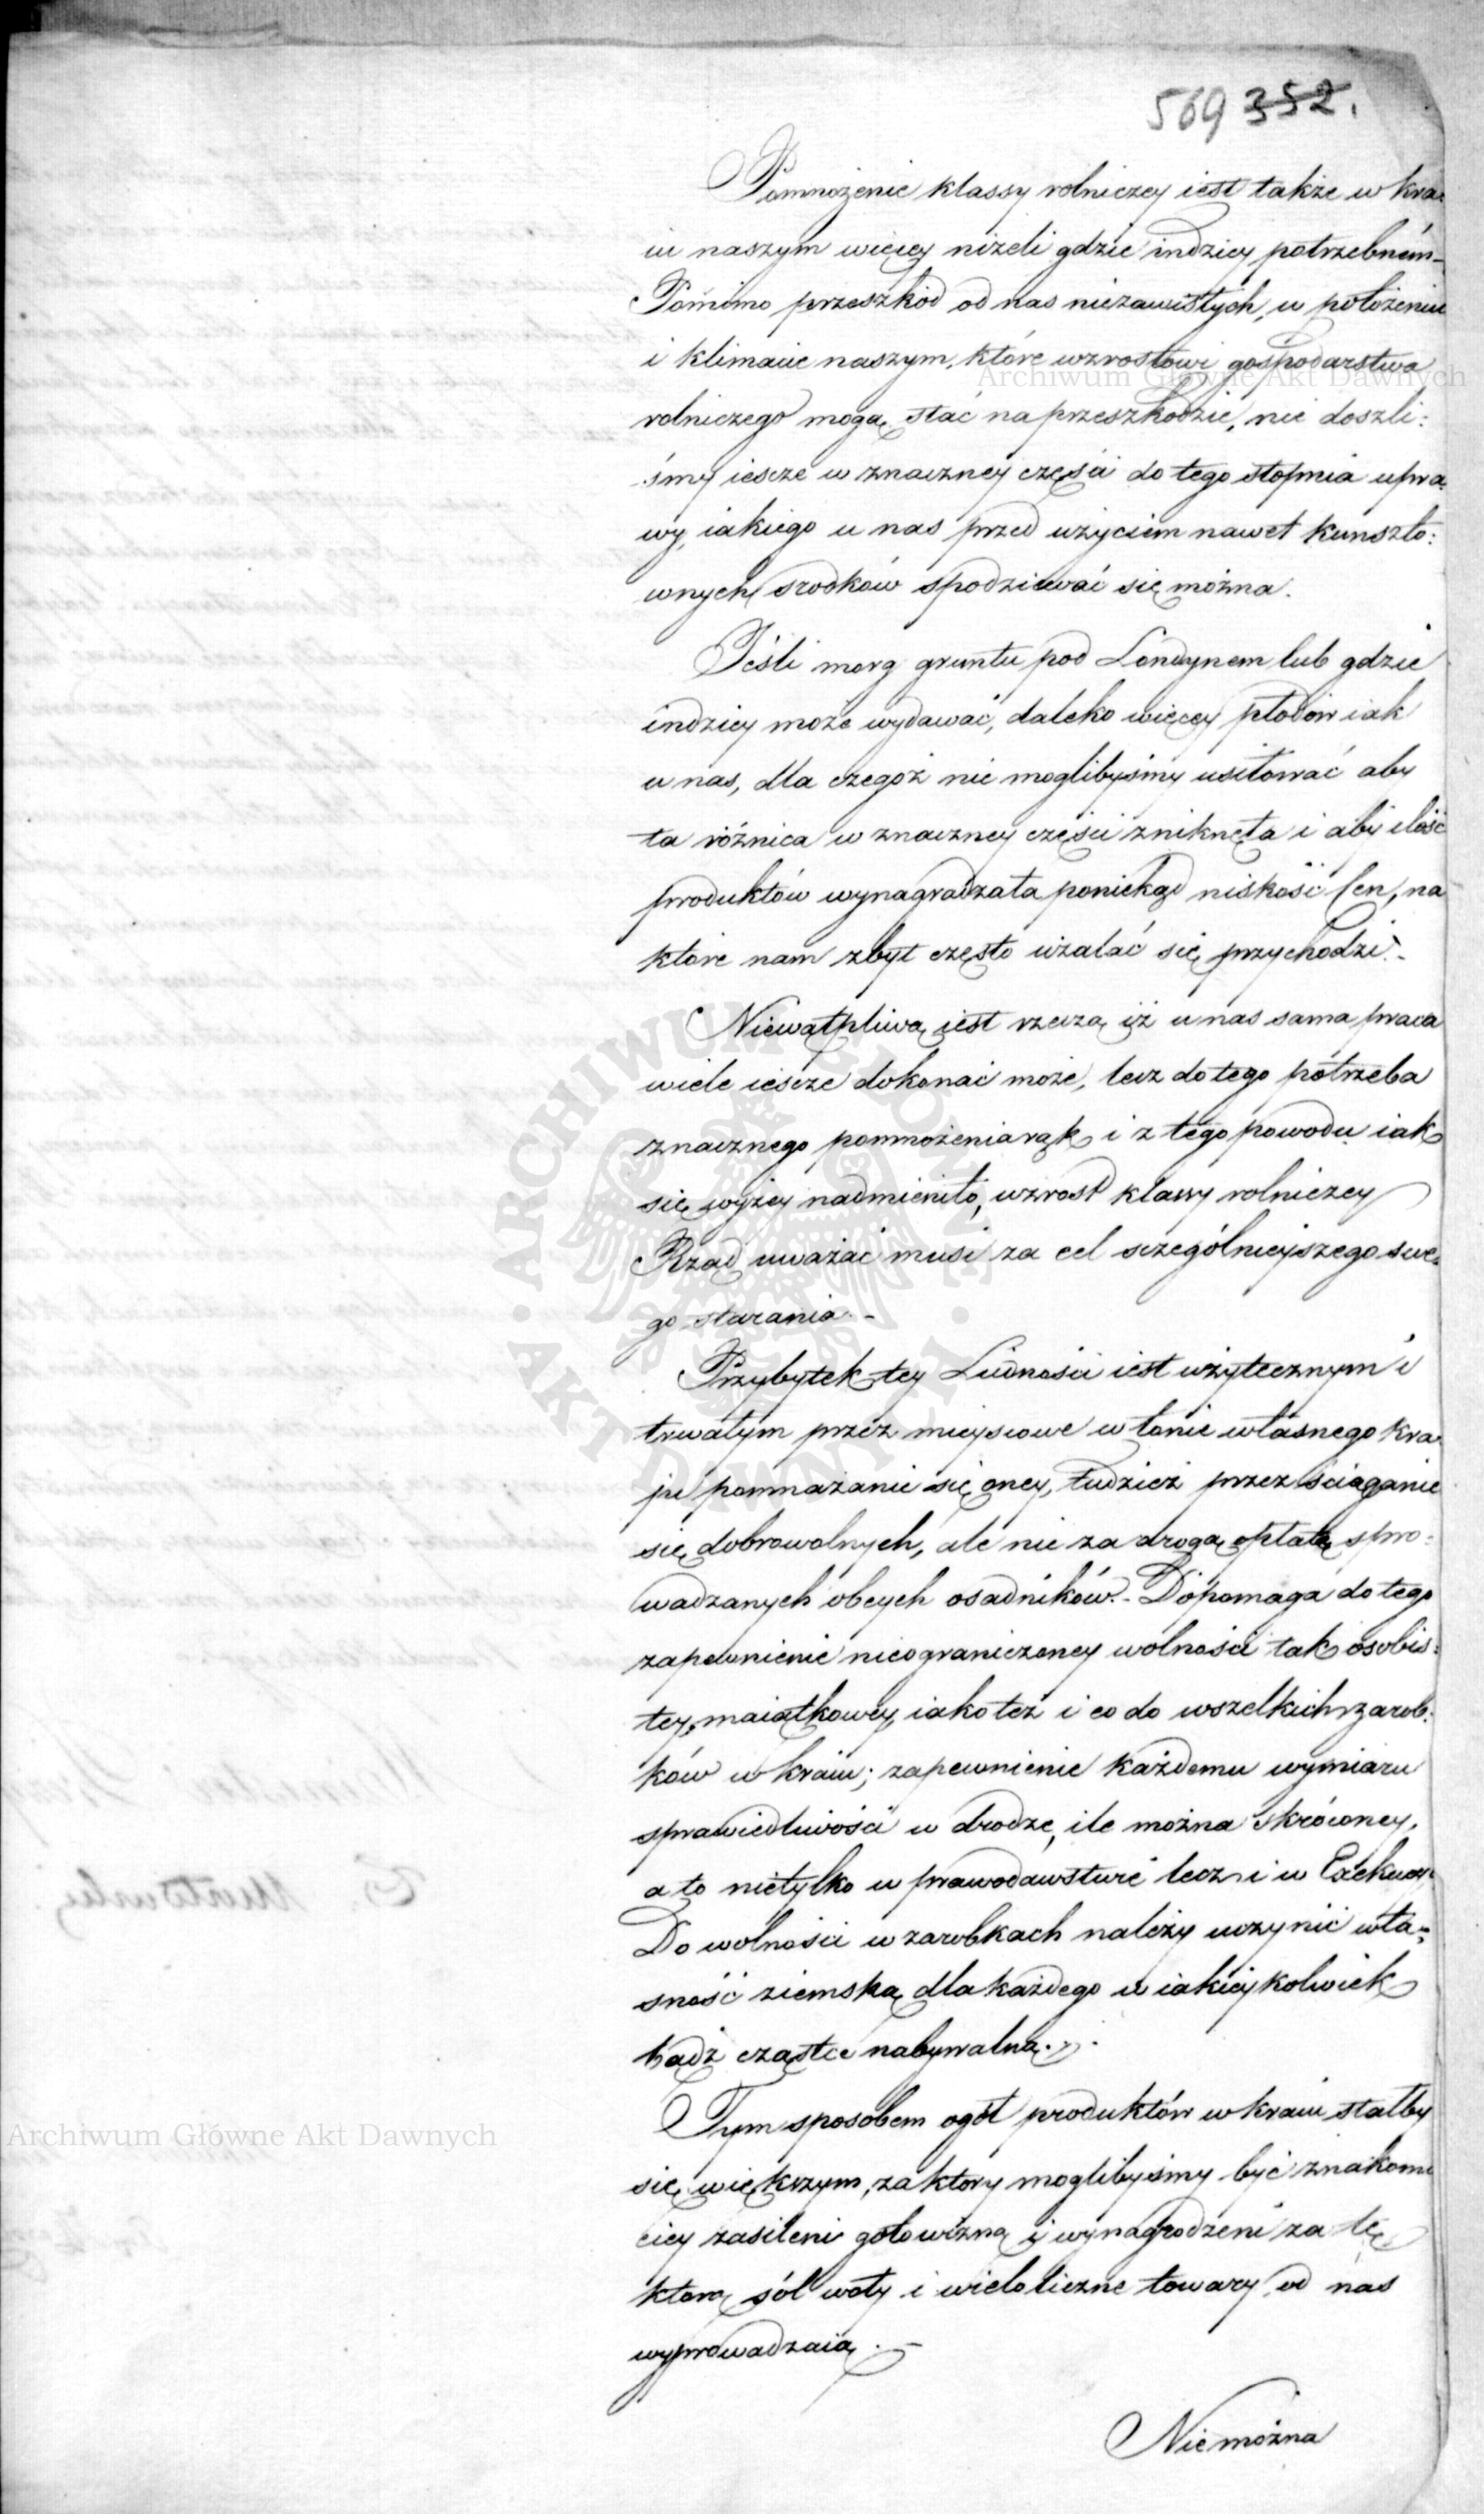 569 352.
Pomnożenie klassy rolniczey iest także w kra=
iu naszym więcey niżeli gdzie indziey potrzebném_
Pomimo przeszkód od nas niezawisłych, w położeniu
i klimacie naszym, które wzrostowi gospodarstwa
Archiwum Główne Akt Dawnych
rolniczego mogą stać na przeszkodzie, nie doszli:
śmy iescze w znaczney części do tego stopnia upra=
wy, iakiego u nas przed użyciem nawet kunszto:
wnych srodków spodziewać się można.
Jeśli morg gruntu pod Londynem lub gdzie
indziey może wydawać, daleko więcey płodów iak
u nas, dla czegoż nie moglibyśmy usiłować aby
ta różnica w znaczney części znikneła i aby ilość
produktów wynagradzała poniekąd niskość Cen, na
które nam zbyt często użalać się przychodzi._
Niewątpliwą iest rzeczą iż u nas sama praca
wiele iescze dokonać może, lecz do tego potrzeba
znacznego pomnożenia rąk i z tego powodu iak
się wyżey nadmieniło, wzrost klassy rolniczey
Rząd uważać musi za cel sczególnieyszego swe=
go starania._
Przybytek tey Ludności iest użytecznym i
trwałym przez mieyscowe w łonie własnego kra=
ju pomnażanie się oney, tudzież przez ściąganie
się dobrowolnych, ale nie za drogą opłatę spro=
wadzanych obcych osadników._ Dopomaga do tego
zapewnienie nieograniczoney wolności tak osobis:
tey, maiątkowey, iako też i co do wszelkich zarob:
ków w kraiu; zapewnienie każdemu wymiaru
sprawiedliwości w drodze, ile można skróconey,
a to nietylko w prawodawstwie lecz i w Exekucyi.
Do wolności w zarobkach należy uczynić wła=
sność ziemską dla każdego w iakieykolwiek
bądź cząstce nabywalną.
Tym sposobem ogół produktów w kraiu stałby
się większym, za który moglibyśmy być znakomi
ciey zasileni gotowizną i wynagrodzeni za tę
którą sól woły i wieloliczne towary od nas
Archiwum Główne Akt Dawnych
wyprowadzaią._
Niemożna
ARCHIWUM GŁÓWNE · AKT DAWNYCH ·